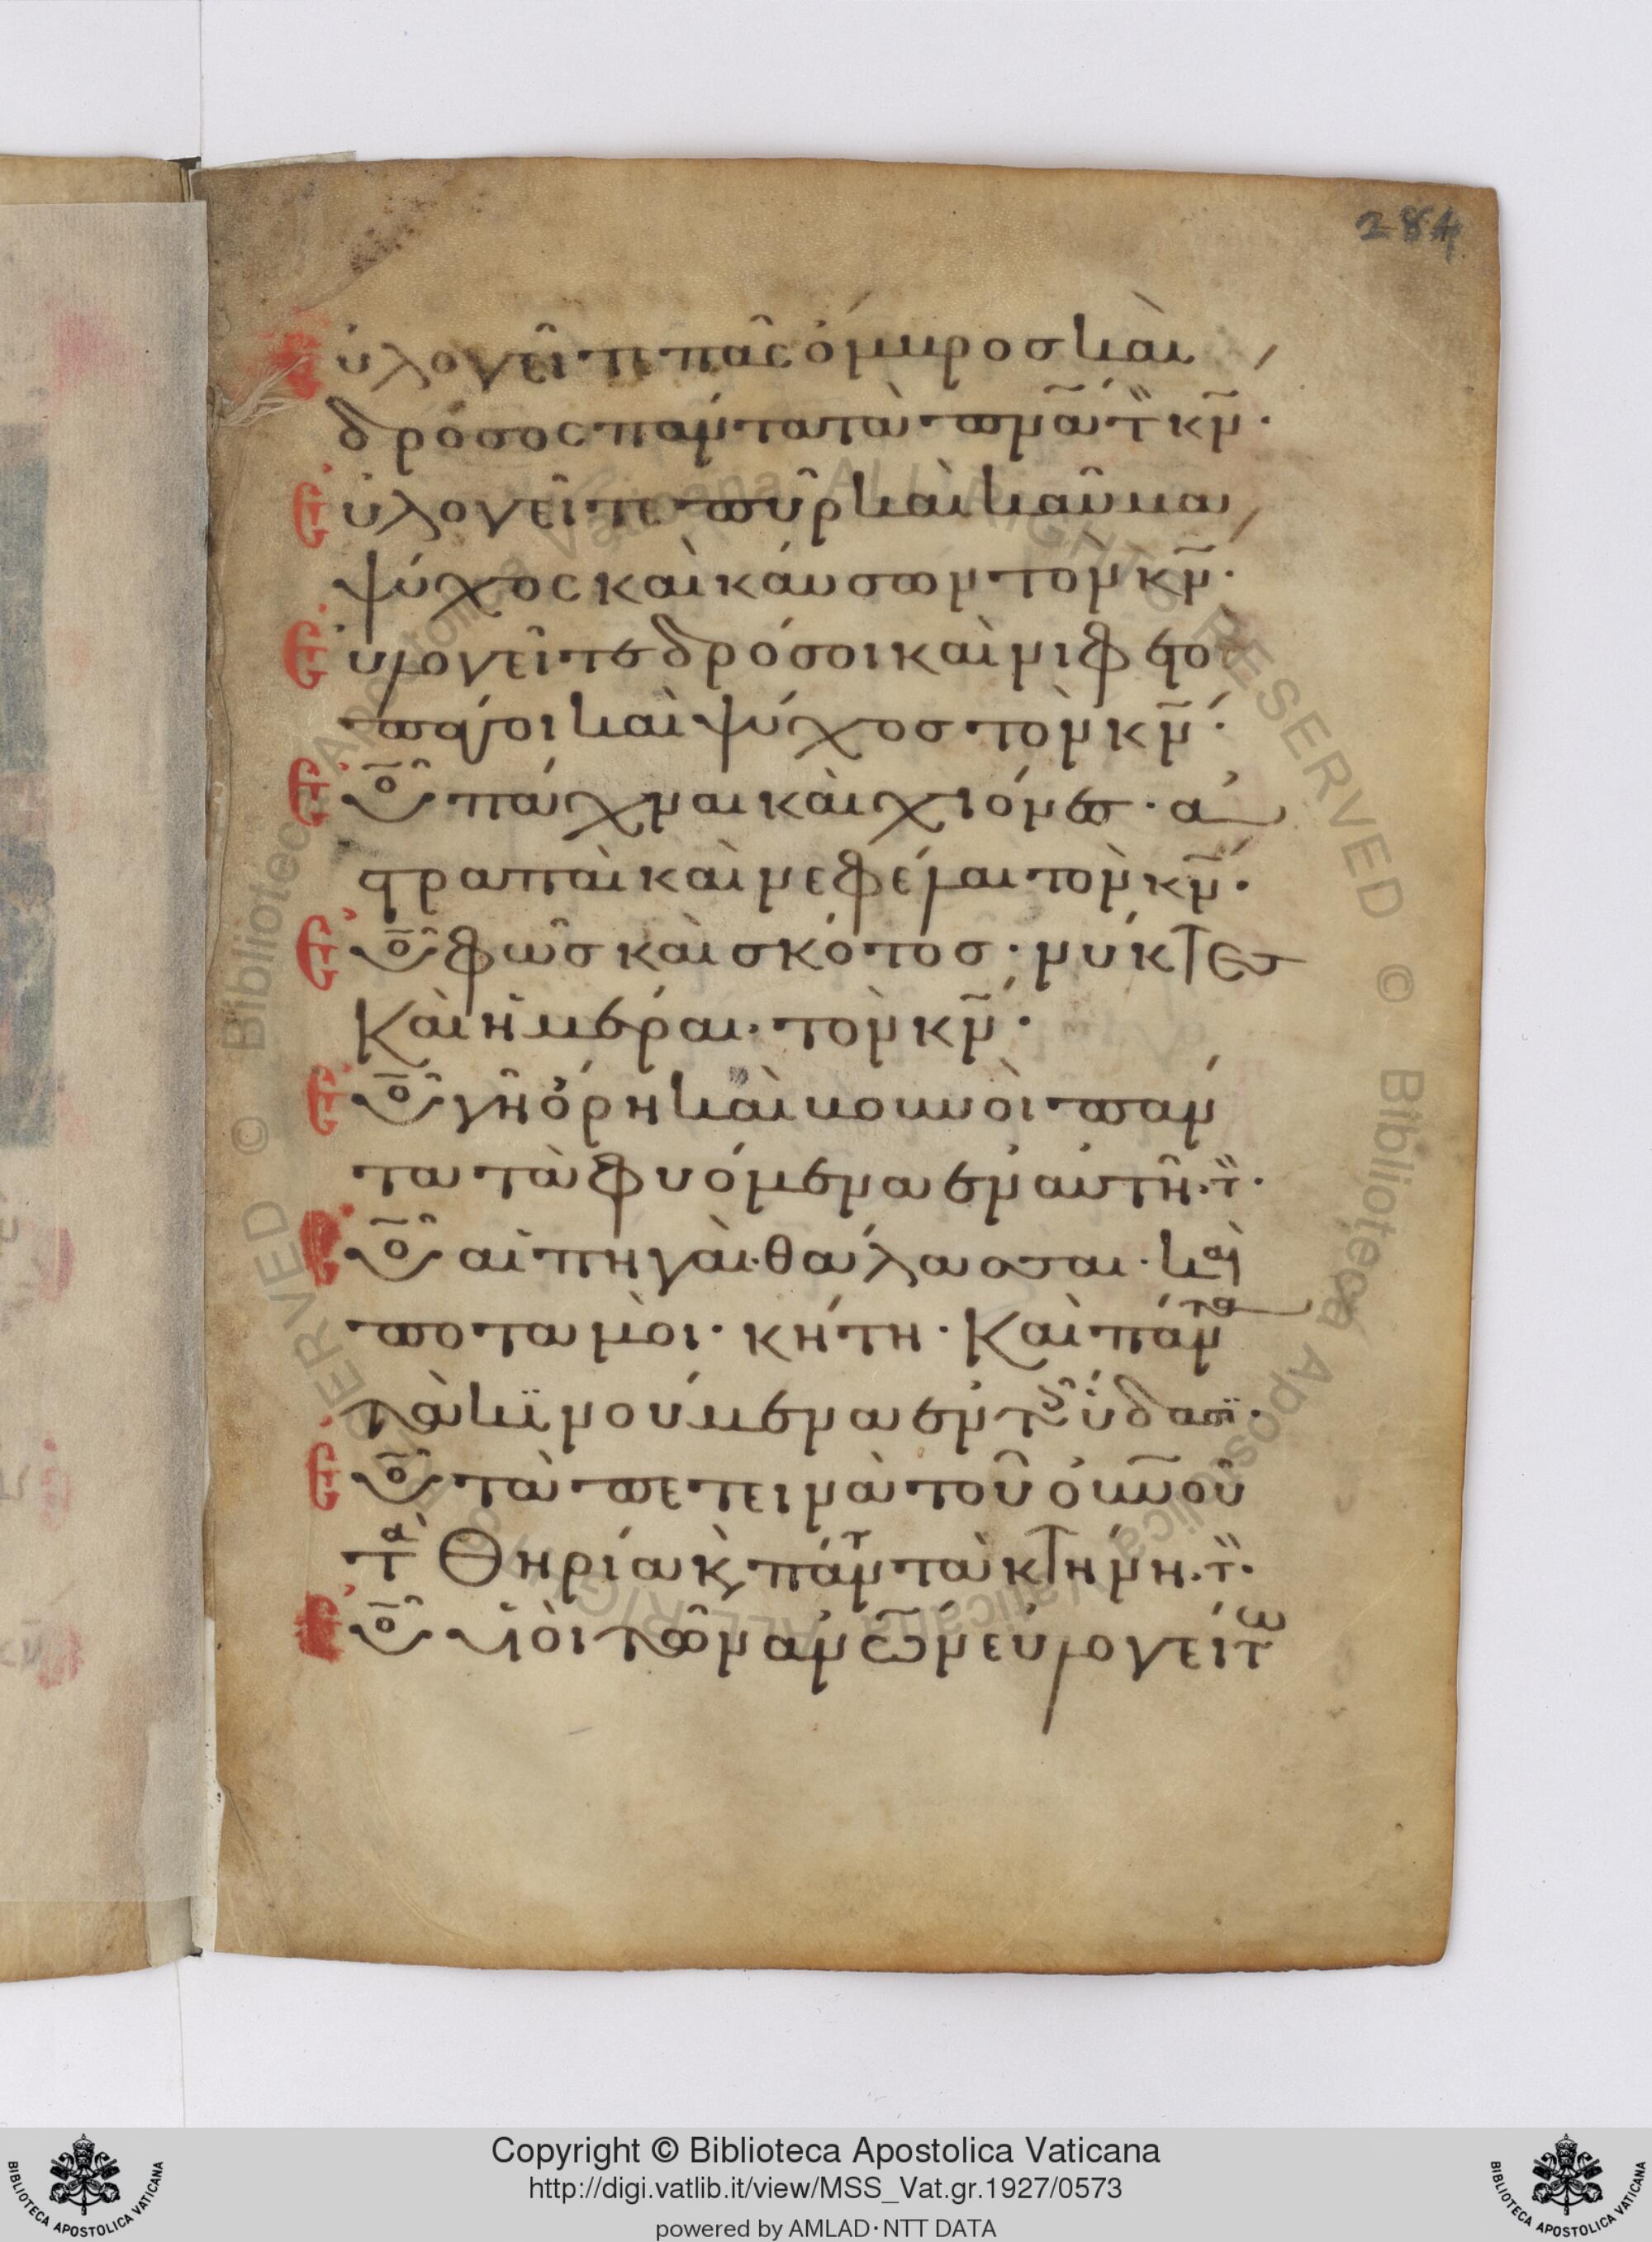 284
Εὐλογεῖτε πᾶς ὄμβρος καὶ
δρόσος πάντα τὰ πν̅ά̅τ̅ κν̅·
Εὐλογεῖτε πῦρ καὶ καῦμα
ψύχος καὶ καύσων τὸν κν̅·
Εὐλογεῖτε δρόσοι καὶ νιφετοὶ
πάγοι καὶ ψύχος τὸν κν̅·
Εὐο̅ πάχναι καὶ χιόνες· ἀ
στραπαὶ καὶ νεφέλαι τὸν κν̅·
Εὐο̅ φῶς καὶ σκότος· νύκτες
Καὶ ἡμέραι· τὸν κν̅·
Εὐο̅ γῆ ὄρη καὶ βουνοὶ πάν
τα τὰ φυόμενα ἐν αὐτῆ· τ̅·
Εὐο̅ αἱ πηγαὶ· θάλασσαι· καὶ
ποταμοὶ· κήτη· Καὶ πάντα
τὰ κινούμενα ἐν τοῖς ὕδασι·
Εὐο̅ τὰ πετεινὰ τοῦ οὐνοῦ
τὰ Θηρία κ, πάντα τὰ κτήνη· τ̅·
Εὐο̅ υἱοὶ τῶν ἀνω̅ν εὐλογείτω
Copyright © Biblioteca Apostolica Vaticana
http://digi.vatlib.it/view/MSS_Vat.gr.1927/0573
powered by AMLAD·NTT DATA
BIBLIOTECA APOSTOLICA VATICANA
BIBLIOTECA APOSTOLICA VATICANA